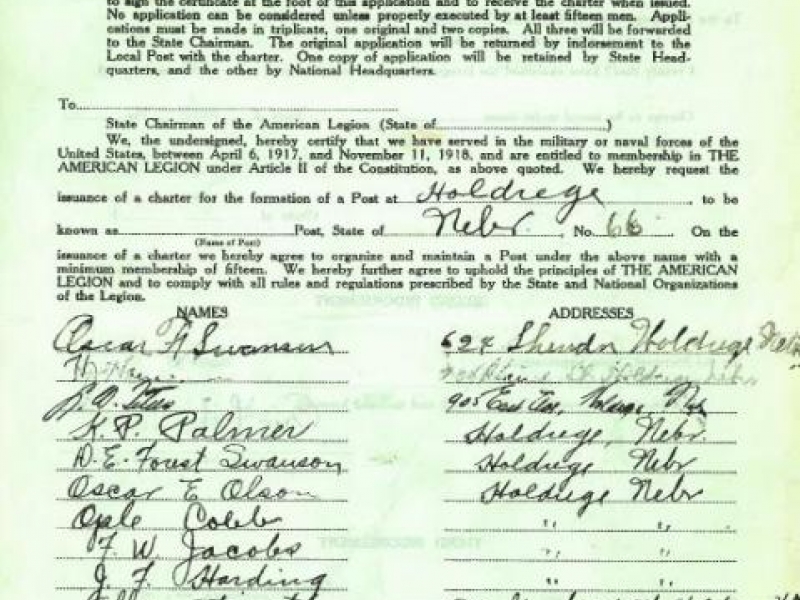 to sign the certificate at the foot of this application and to receive the charter when issued.
No application can be considered unless properly executed by at least fifteen men. Appli-
cations must be made in triplicate, one original and two copies. All three will be forwarded
to the State Chairman. The original application will be returned by indorsement to the
Local Post with the charter. One copy of application will be retained by State Head-
quarters, and the other by National Headquarters.
To
State Chairman of the American Legion (State of )
We, the undersigned, hereby certify that we have served in the military or naval forces of the
United States, between April 6, 1917, and November 11, 1918, and are entitled to membership in THE
AMERICAN LEGION under Article II of the Constitution, as above quoted. We hereby request the
issuance of a charter for the formation of a Post at Holdrege, to be
known as Post, State of Nebr., No. 66. On the
(Name of Post)
issuance of a charter we hereby agree to organize and maintain a Post under the above name with a
minimum membership of fifteen. We hereby further agree to uphold the principles of THE AMERICAN
LEGION and to comply with all rules and regulations prescribed by the State and National Organizations
of the Legion.
NAMES ADDRESSES
Oscar Swanson 624 Holdrege
Holdrege
905 East Ave, Holdrege, Neb
K. P. Palmer Holdrege, Nebr.
D. E. Forest Swanson Holdrege Nebr
Oscar E Olson Holdrege Nebr
Ople Cobb " "
F. W. Jacobs " "
J. F. Harding " "